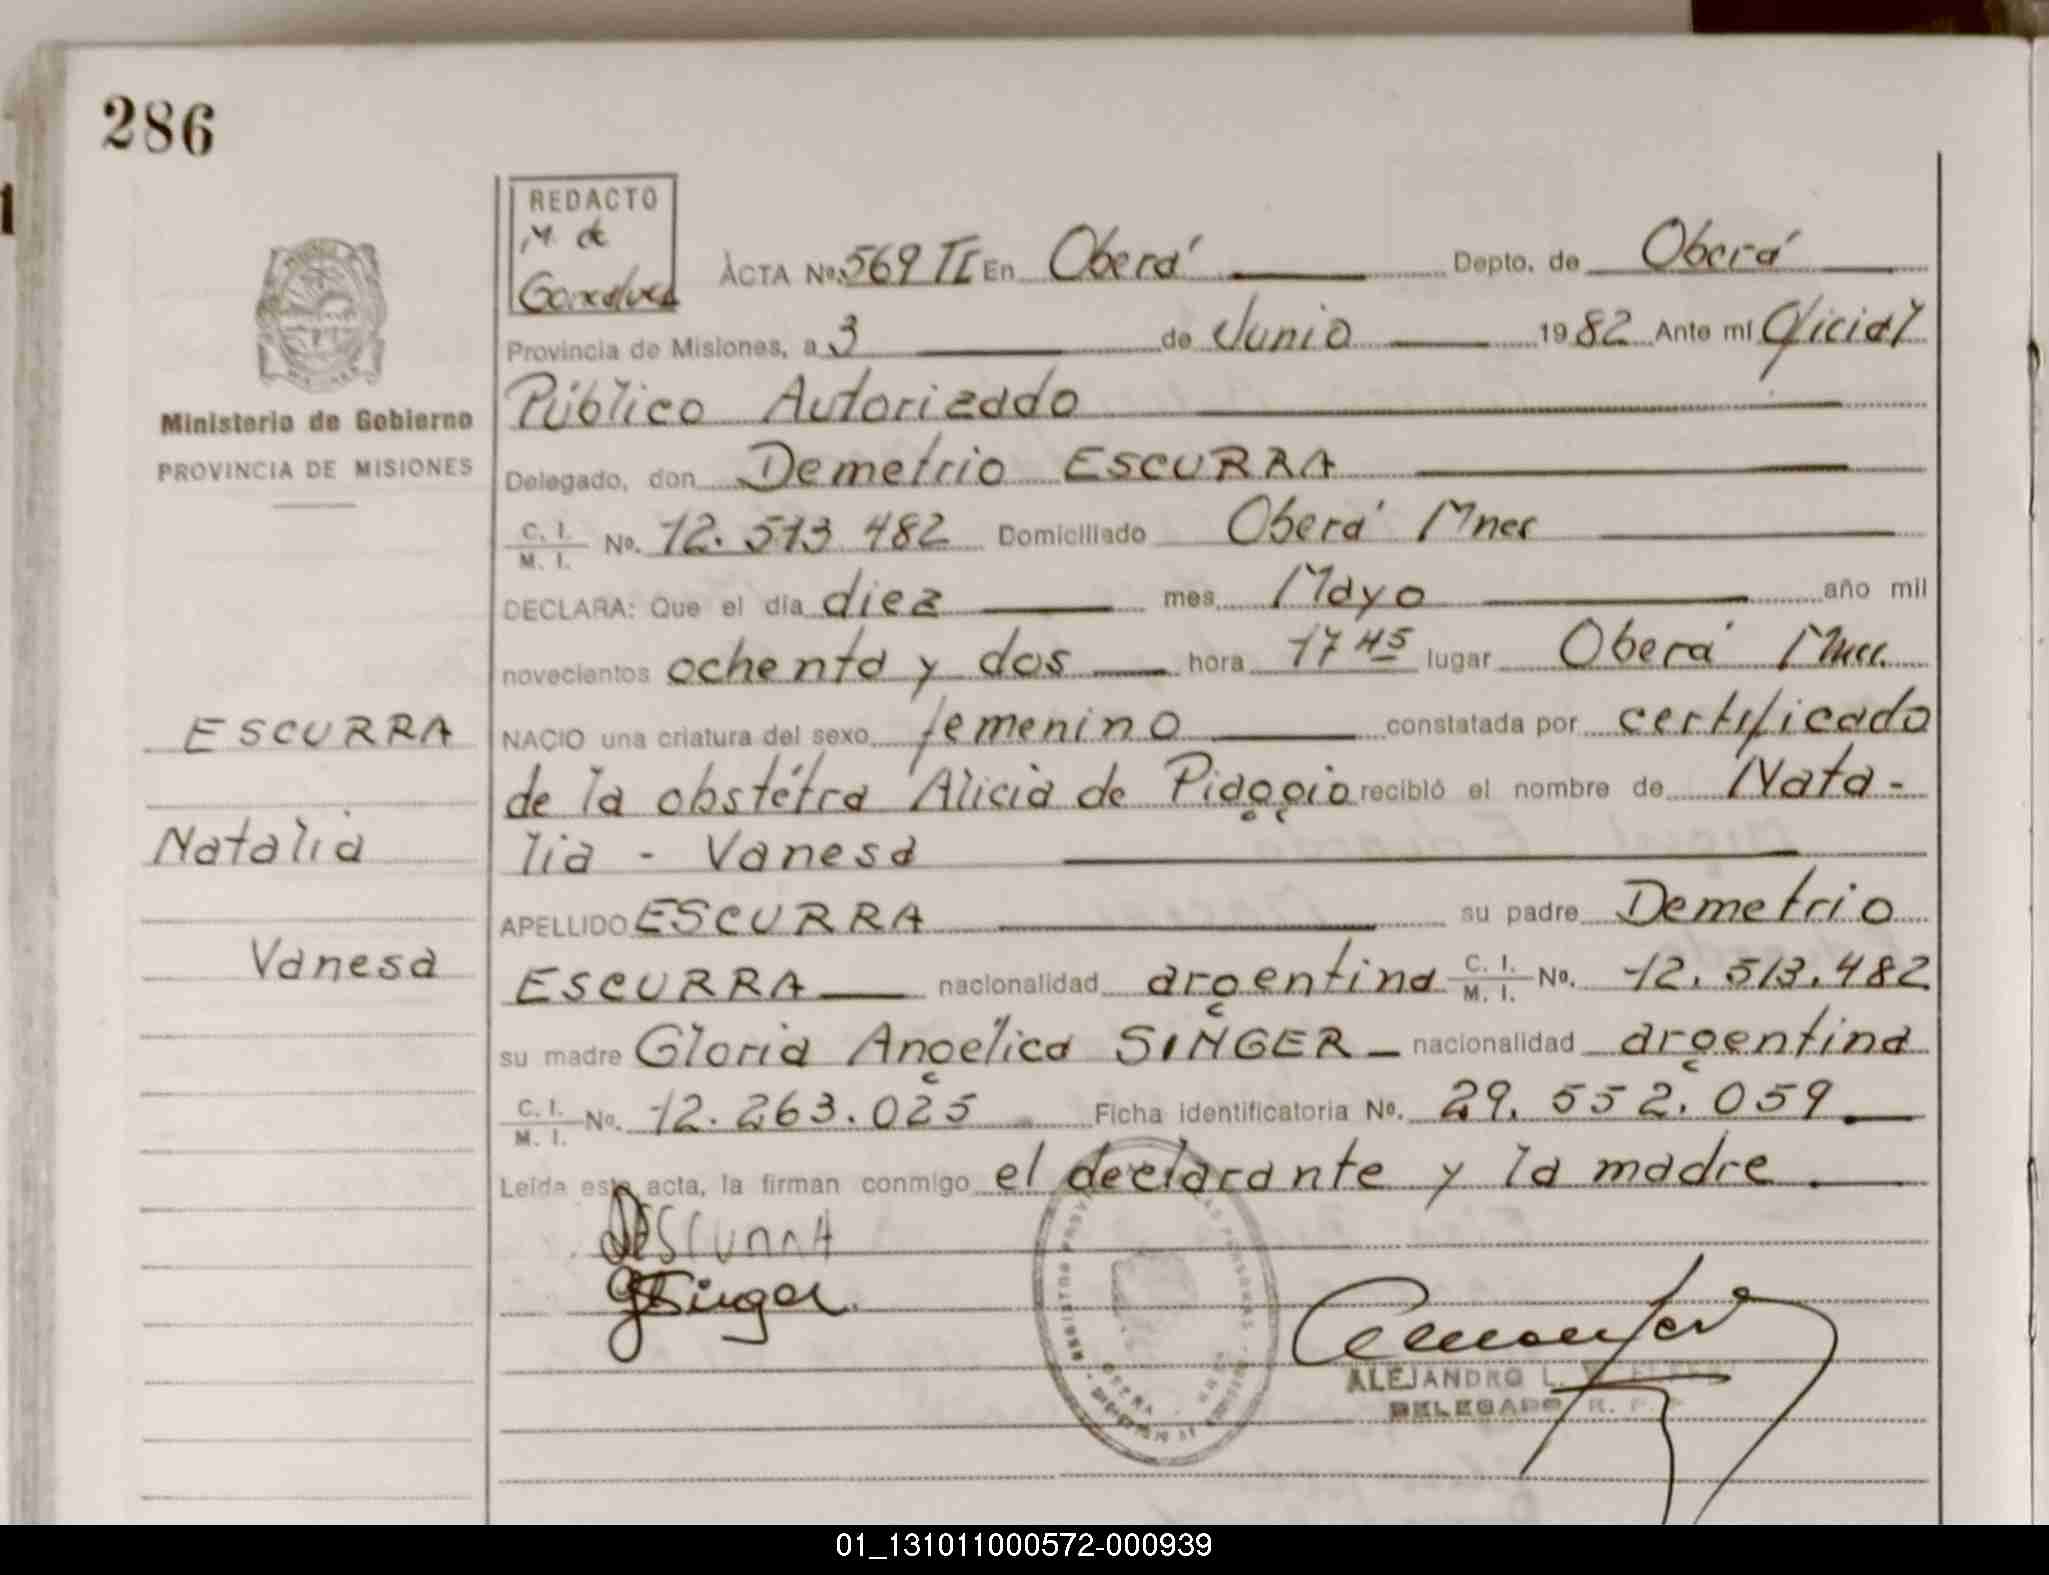 286
REDACTO
M. de
ACTA Nº 569 TI En Oberá Depto. de Oberá
Provincia de Misiones, a 3 de Junio 1982 Ante mí Oficial
Público Autorizado
Ministerio de Gobierno
PROVINCIA DE MISIONES
Delegado, don Demetrio ESCURRA
C. I.
M. I. Nº. 12.513.482 Domiciliado Oberá Mnes
DECLARA: Que el día diez mes Mayo año mil
novecientos ochenta y dos hora 17 45 lugar Oberá Mnes.
ESCURRA
NACIO una criatura del sexo femenino constatada por certificado
de la obstétra Alicia de recibió el nombre de Nata-
Natalia
lia - Vanesa
APELLIDO ESCURRA su padre Demetrio
Vanesa
ESCURRA nacionalidad argentina C. I.
M. I. Nº. 12.513.482
su madre Gloria Angélica SINGER nacionalidad argentina
C. I.
M. I. Nº. 12.263.025 Ficha identificatoria Nº. 29.552.059
Leída esta acta, la firman conmigo el declarante y la madre.
DESCURRA
GSinger
ALEJANDRO L.
DELEGADO R. P.
01_131011000572-000939